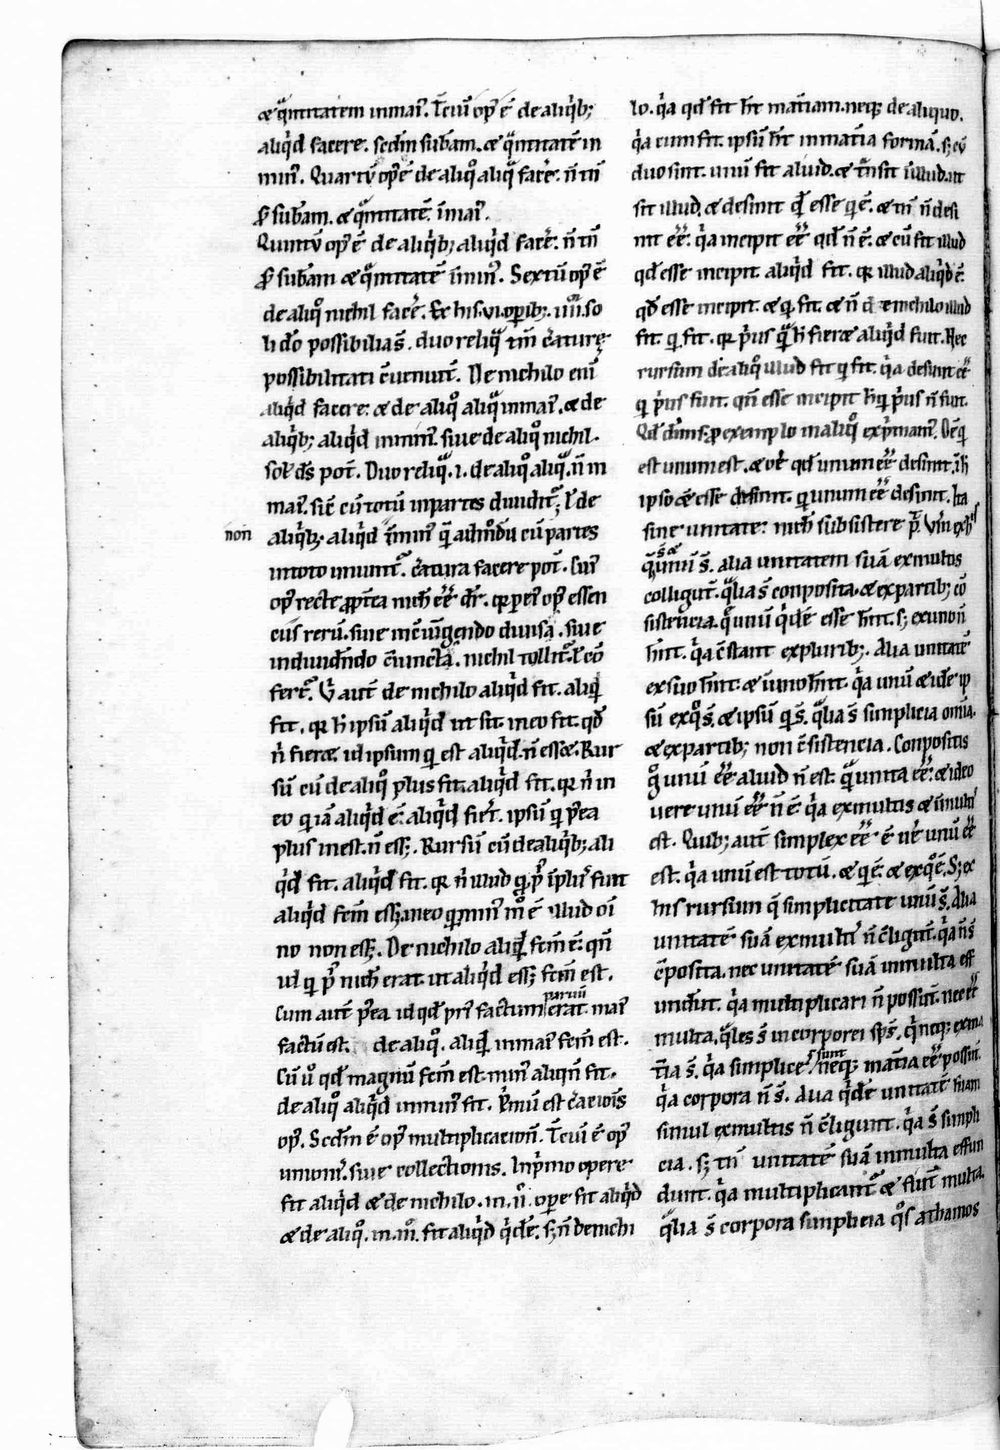 & qͣntitatem inmaiꝰ. Tciū opꝰ ē de aliqͥb;
aliqͥd facere. scdm subam. & qͣntitatē in
minꝰ. Quartū opꝰ ē de aliqͦ aliqͣ facͤe. n̄ tn̄
ꝑ subam. & qͣntitatē īmaiꝰ.
Quintū opꝰ ē de aliqͥb; aliqͥd facͤe. n̄ tn̄
ꝑ subam & qͣntitatē īminꝰ. Sextū opꝰ ē
de aliqͦ nichil facͤe. Ex his .vi. opibꝫ. iiiiᵒʳ. so
li dō possibilia s̄. duo reliqͣ tm̄ cͤature
possibilitati
aliqͥd facere. & de aliqͦ aliqͣ inmaiꝰ. & de
aliqͥb; aliqͥd inminꝰ. siue de aliqͦ nichil.
solꝰ ds̄ pot̄. Duo reliqͣ .i. de aliqͦ aliqͣ. n̄ in
maiꝰ. sic̄ cū totū inpartes diuidit᷑; ł de
non
aliqͥb;. aliqͥd īminꝰ cū partes
intoto uniunt᷑. cͤatura facere pot̄. Cuiꝰ
opꝰ recte nich̄ eē dr̄. qꝛ opꝰ essen
cūs rerū. siue iūgendo diuisa. siue
indiuidendo cͦiuncta. nichil tollit᷑. ł cͦo
fert᷑. Ubi aut̄ de nichilo aliqͥd fit. aliqͥd
fit. qꝛ h̄ ipsū aliqͥd ut sit. ineo fit. qd̄
n̄ fieret idipsum qͩ est aliqͥd. n̄ esset. Rur
sū cū de aliqͦ plus fit. aliqͥd fit. qꝛ n̄ in
eo qͩ iā aliqͥd ē. aliqͥd fit. ipsū qͩ p̄ea
plus inest. n̄ ess;. Rursū cū de aliqͥb; ali
qͥd fit. aliqͥd fit. qꝛ n̄ illud
aliqͥd fcm̄ ess; illud oī
no non ess;. De nichilo aliqͥd fcm̄ ē. qn̄
id qͩ pͥꝰ nich̄ erat. ut aliqͥd ess; fcm̄ est.
Cum aut̄ p̄ea id qd̄ pͥꝰ factum
paruū
erat maiꝰ
factū est. de aliqͦ. aliqͥd inmaiꝰ fcm̄ est.
Cū ū qd̄ magnū fcm̄ est. minꝰ aliqn̄ fit.
de aliqͦ aliqͥd inminꝰ fit. Pͥmū est cͤacionis
opꝰ. Scdm ē opꝰ multiplicacionis. Tciū ē opꝰ
unionis. siue collectionis. Inpͥmo opere
fit aliqͥd & de nichilo. in .iiͦ. ope fit aliqͥd
& de aliqͦ. in .iiiͦ. fit aliqͥd qͥdē. s; n̄ de nichi
lo. qͥa qd̄ fit h̄t mat̄iam. neq; de aliquo.
qͥa cum fit. ipsū h̄t inmat̄ia formā. s; cū
duo sint. unū fit aliud. & tͣnsit īillud. ut
sit illud. & desinit qͩ esse qͩ ē. & tn̄ n̄ desi
nit eē. qͥa incipit eē qd̄ n̄ ē. & cū fit illud
qd̄ esse incipit. aliqͥd fit. qꝛ illud aliqͥd ē.
qd̄ esse incipit. & qͩ fit. & n̄ de nichilo illud
fit. qͩ fit. qꝛ pͥus qͣ h̄ fieret aliqͥd fuit. Nec
rursum de aliqͦ illud fit qͩ fit. qͥa desinit eē
qͩ pͥus fuit. qn̄ esse incipit h̄ qͩ pͥus n̄ fuit.
exemplo inaliqͦ expͥmamꝰ. Oē qͩ
est unum est. & ubi qd̄ unum eē desinit. ī h̄
ipso & esse desinit. qͩ unum eē desinit. Ita
sine unitate. nich̄ subsistere
s̄ &
qͣ unū s̄. alia unitatem suā exmultis
colligūt. qͣlia s̄ conposita. & expartib; cō
sistencia. qͣ unū qͥdē esse h̄nt. s; exuno n̄
h̄nt. qͥa cͦstant expluribꝫ. Alia unitatē
exsuo h̄nt. & īuno h̄nt. qͥa unū & idē ip
sū exqͦ s̄. & ipsū qͩ s̄. qͣlia s̄ simplicia omīa.
& expartib; non cͦsistencia. Conpositis
gͦ unū eē. aliud n̄ est. qͣ unita eē. & ideo
vere unū eē n̄ ē. qͥa exmultis & īmultis
est. Quibꝫ aut̄ simplex eē ē uͤe unū eē
est. qͥa unū est totū. & qͩ ē. & exqͦ ē. S; ex
his rursum qͣ simplicitate unū s̄. Alia
unitatē suā exmultis n̄ cͦligūt. qͥa n̄ s̄
cͦposita. nec unitatē suā inmulta eff
undūt. qͥa multiplicari n̄ possūt. nec eē
multa. qͣles s̄ incorporei spͥs. qͥ neq; exma
t̄ia s̄. qͥa simplices
sunt
neq; mat̄ia eē possūt.
qͥa corpora n̄ s̄. Alia qͥdē unitatē suam
simul exmultis n̄ cͦligunt. qͥa s̄ simpli
cia. s; tn̄ unitatē suā inmulta effun
dunt. qͥa multiplicant᷑ & fiūt multa.
qͣlia s̄ corpora simplicia qͦs athamos